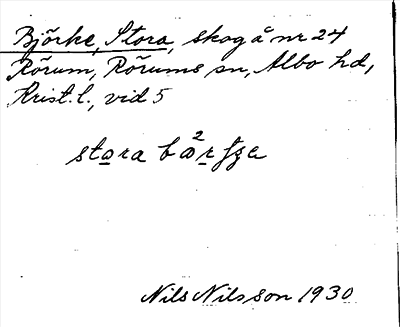 Björke, Stora, skog å nr 24
Rörum, Rörums sn, Albo hd,
Krist. l., vid 5
Nils Nilsson 1930